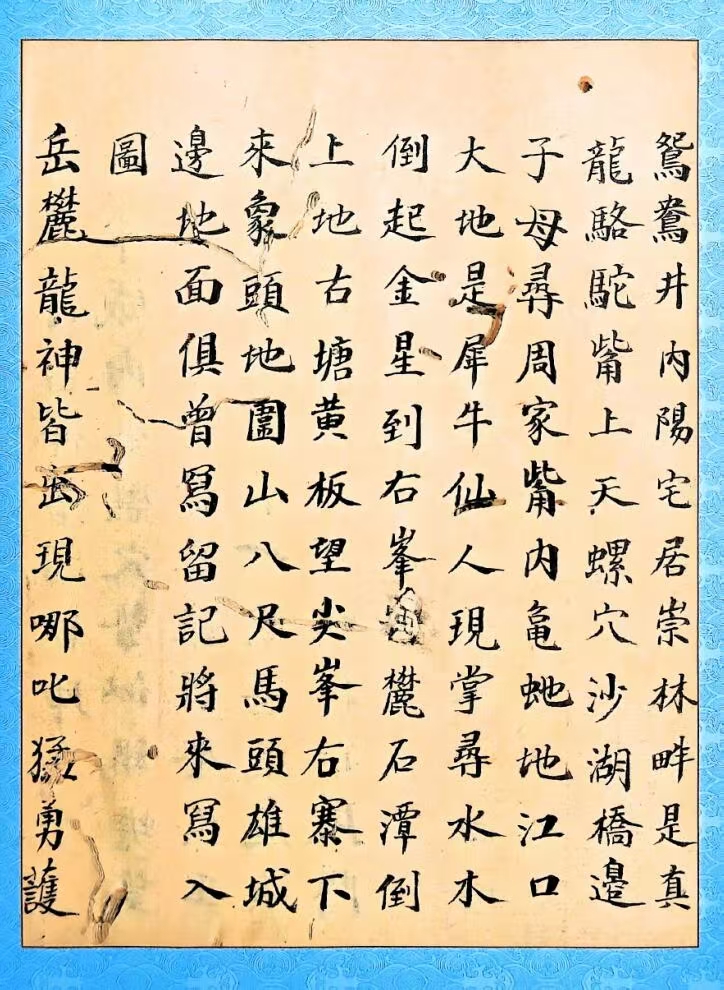 鴛鴦井內陽宅居崇林畔是真
龍駱駝觜上天螺穴沙湖橋邉
子母尋周家觜內亀虵地江口
大地是犀牛仙人現掌尋水木
倒起金星到右峯麓石潭倒
上地古塘黃板望尖峯右寨下
來象頭地圍山八尺馬頭雄城
邊地面俱曾寫留記將來寫入
圖
岳麓龍神皆出現哪叱猛勇護